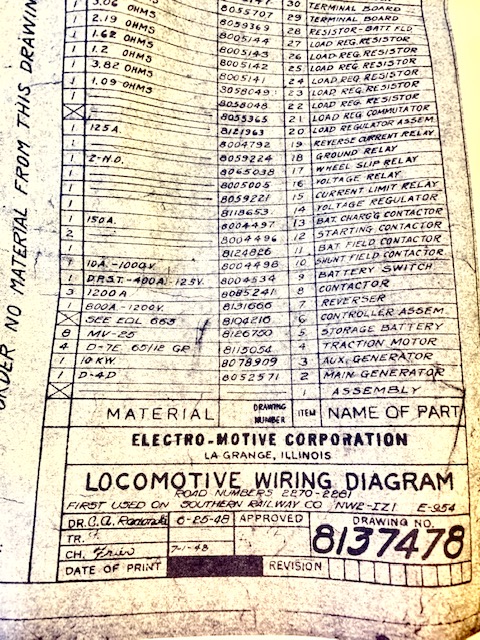 1 3.06 OHMS 30 TERMINAL BOARD
1 2.19 OHMS 8055707 29 TERMINAL BOARD
1 1.62 OHMS 8059369 28 RESISTOR-BATT FLD
1 1.2 OHMS 8005144 27 LOAD REG. RESISTOR
1 3.82 OHMS 8005143 26 LOAD REG. RESISTOR
1 1.09 OHMS 8005142 25 LOAD REG. RESISTOR
1 8005141 24 LOAD REG. RESISTOR
3058049 23 LOAD REG. RESISTOR
8058048 22 LOAD REG. RESISTOR
8055365 21 LOAD REG COMMUTATOR
1 125A. 8121963 20 LOAD REGULATOR ASSEM.
1 8004792 19 REVERSE CURRENT RELAY
1 2-N.O. 8059224 18 GROUND RELAY
1 8065038 17 WHEEL SLIP RELAY
1 8005005 16 VOLTAGE RELAY
1 8059221 15 CURRENT LIMIT RELAY
1 8118653 14 VOLTAGE REGULATOR
1 150A. 8004497 13 BAT. CHARG'G CONTACTOR
2 8004496 12 STARTING CONTACTOR
1 8124826 11 BAT. FIELD CONTACTOR
1 10A.-1000V. 8004498 10 SHUNT FIELD CONTACTOR
1 D.P.S.T.-400A.-125V. 8004534 9 BATTERY SWITCH
3 1200A 8085241 8 CONTACTOR
1 800A.-1200V. 8131666 7 REVERSER
SEE EDL 665 8104216 6 CONTROLLER ASSEM.
8 MV-25 8126750 5 STORAGE BATTERY
4 D-7E 65/12 GR 8115054 4 TRACTION MOTOR
1 10 KW. 8078909 3 AUX. GENERATOR
1 D-4D 8052571 2 MAIN GENERATOR
1 ASSEMBLY
MATERIAL DRAWING NUMBER ITEM NAME OF PART
ORDER NO MATERIAL FROM THIS DRAWIN
ELECTRO-MOTIVE CORPORATION
LA GRANGE, ILLINOIS
LOCOMOTIVE WIRING DIAGRAM
ROAD NUMBERS 2270-2281
FIRST USED ON SOUTHERN RAILWAY CO NW2-1Z1 E-954
DR. C.A. 6-25-48 APPROVED DRAWING NO.
TR.
8137478
CH. 7-1-48
DATE OF PRINT REVISION